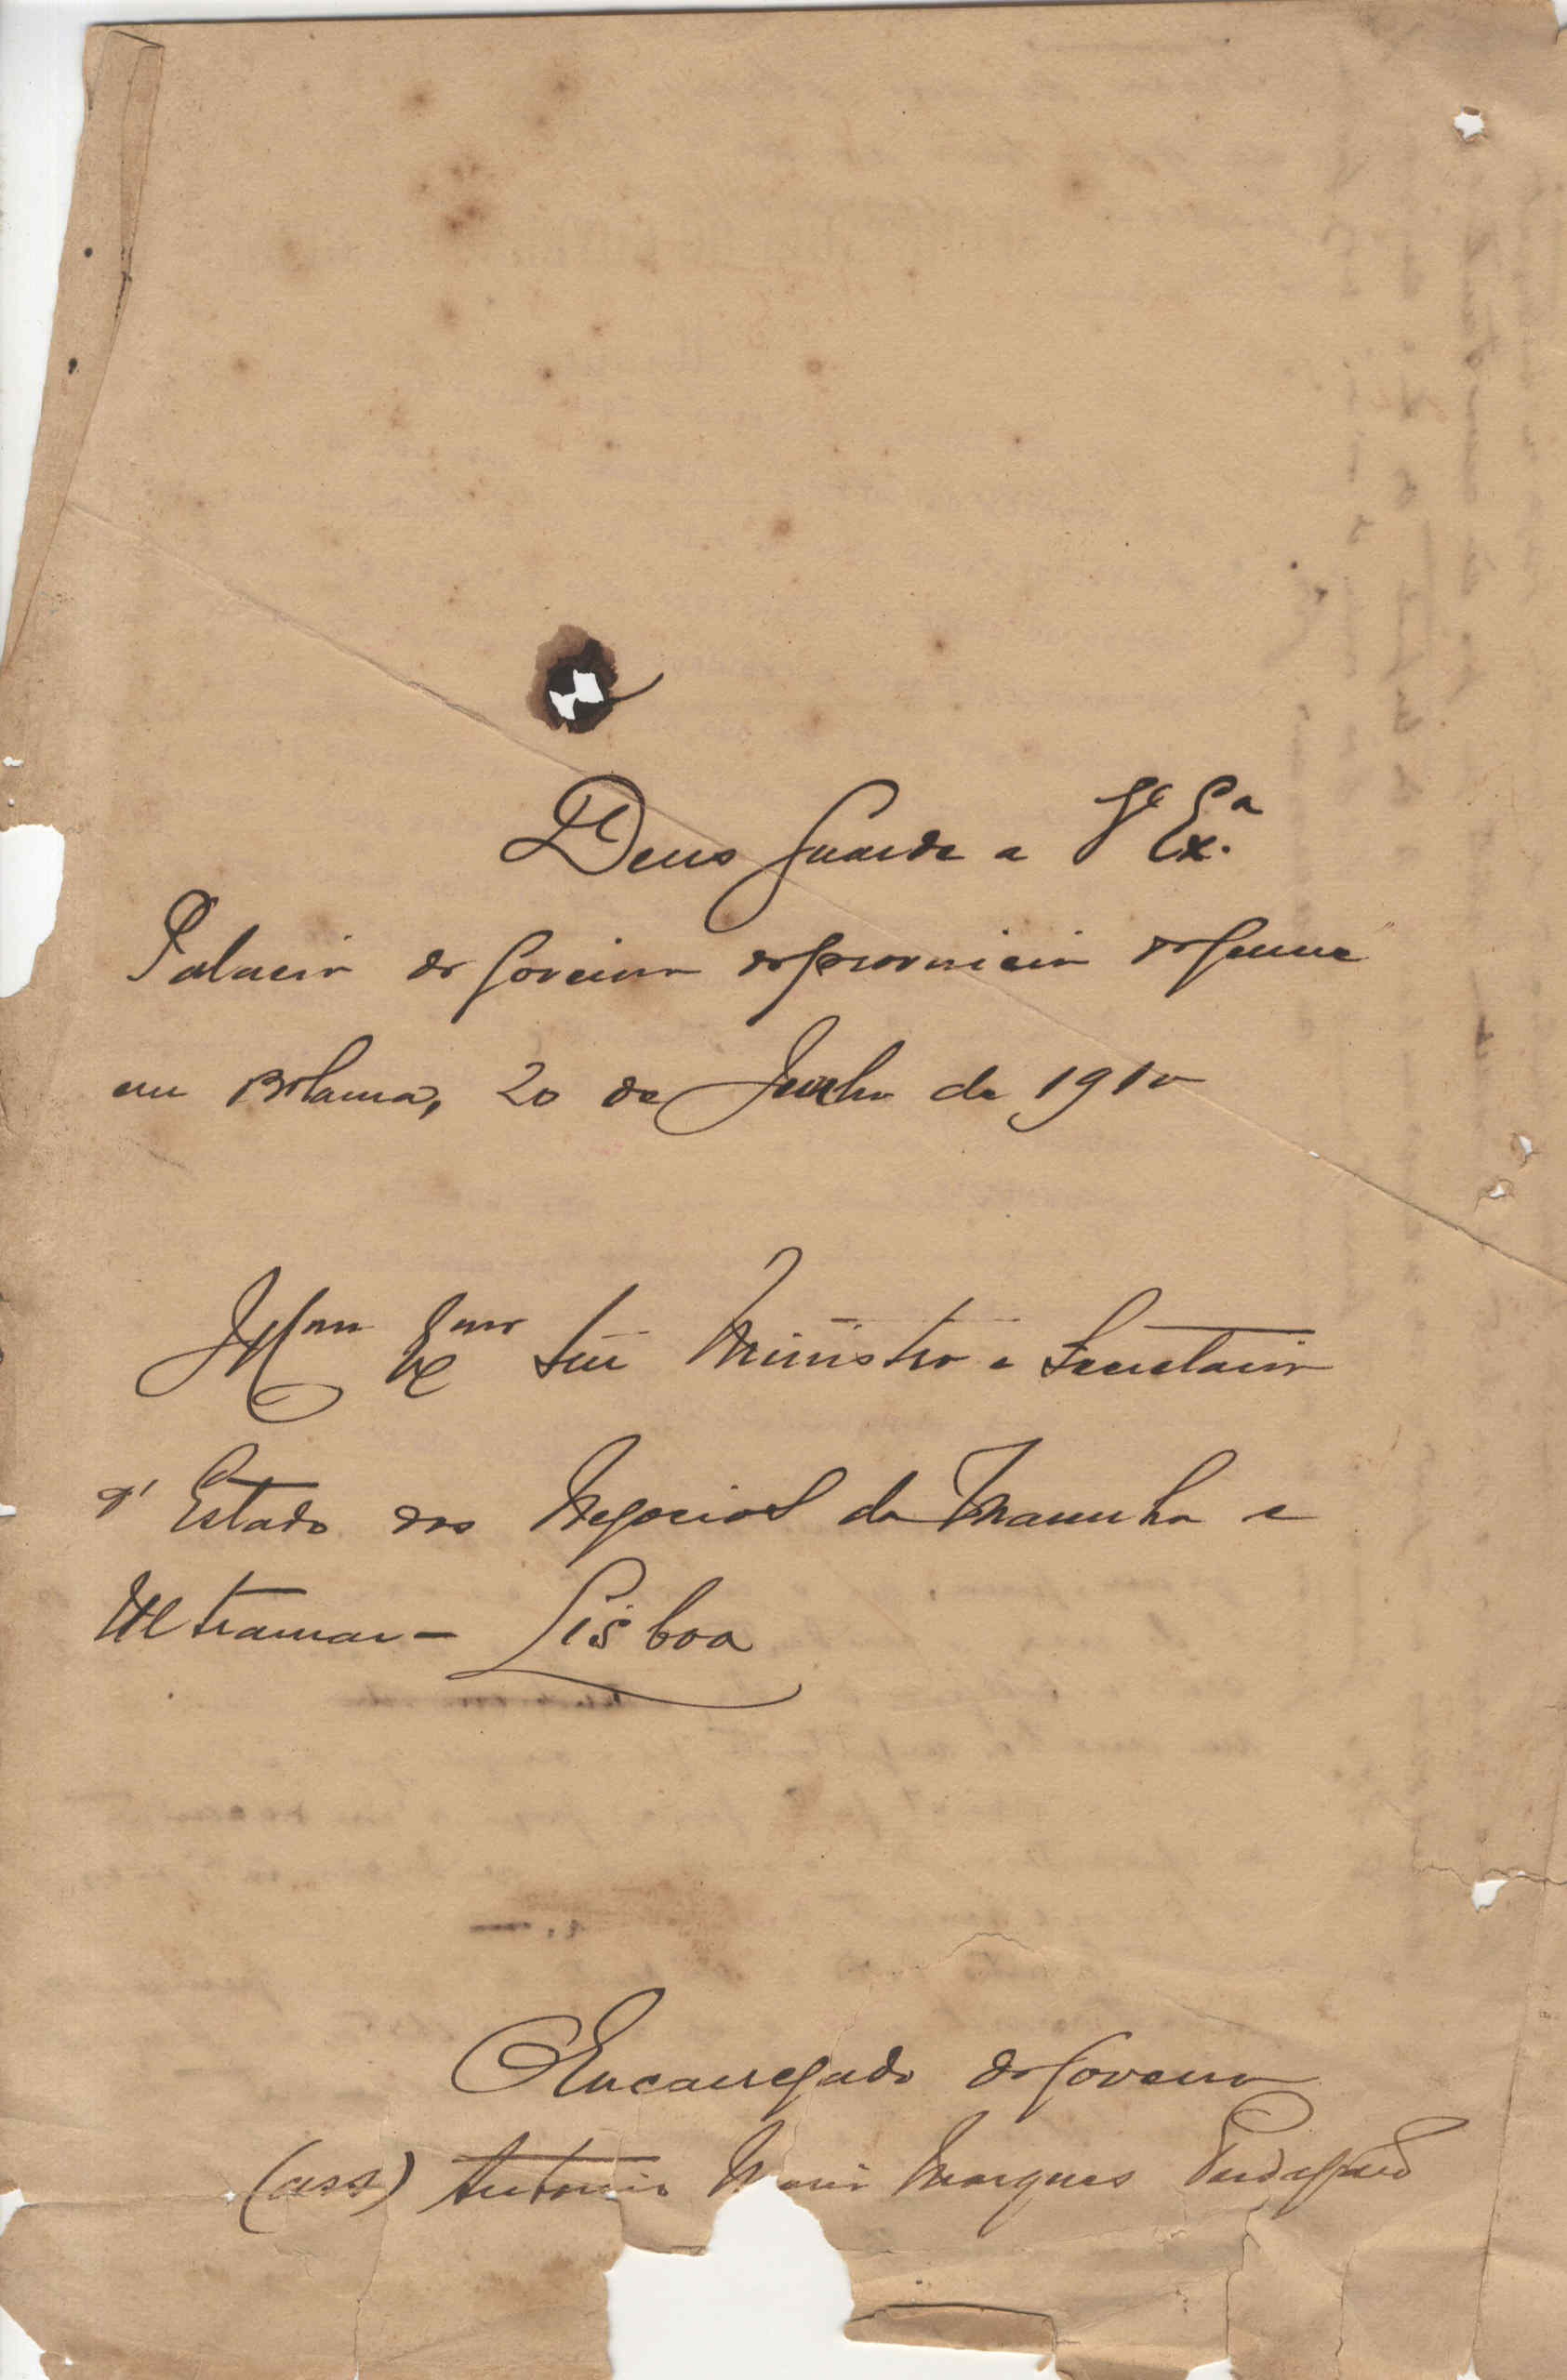 Deus Guarde a V.ª Ex.ª
Palacio do Governo da provincia da Guiné
em Bolama, 20 de Junho de 1910
Ill.mo Ex.mo Snr Ministro e Secretario
d'Estado dos Negocios da Marinha e
Ultramar - Lisboa
O Encarregado do Governo
(ass) Antonio Maria Marques